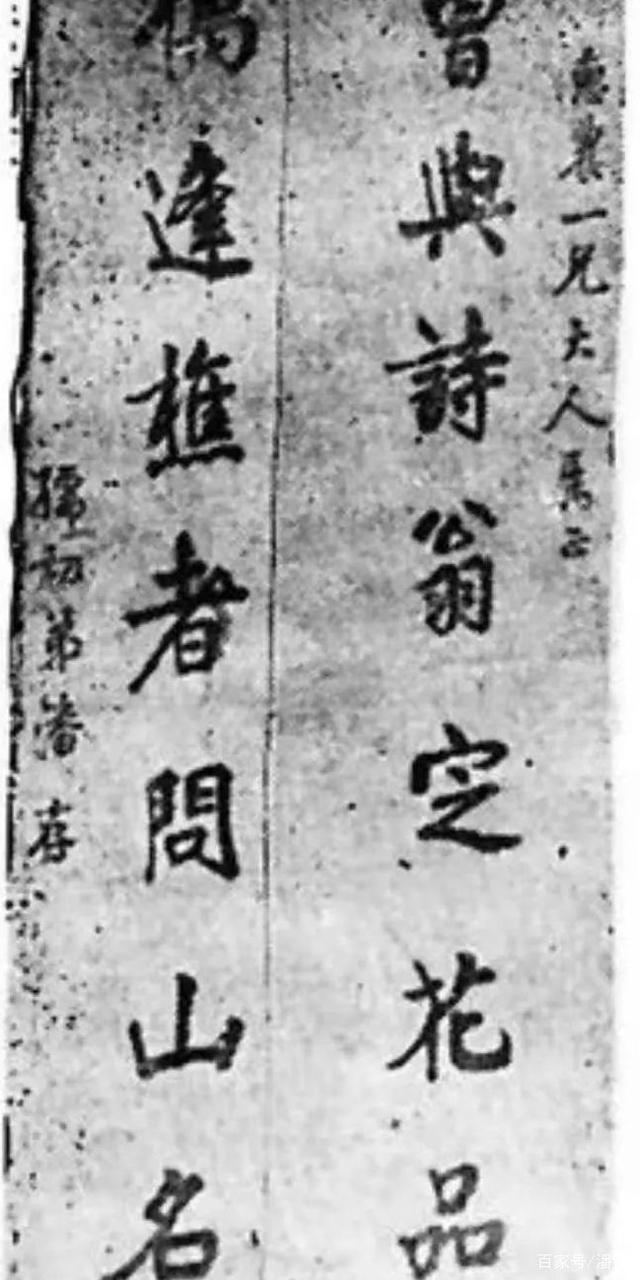 惠農一兄大人属正
曾與詩翁定花品
偶逢樵者問山名
孺初弟潘存
百家号/潘